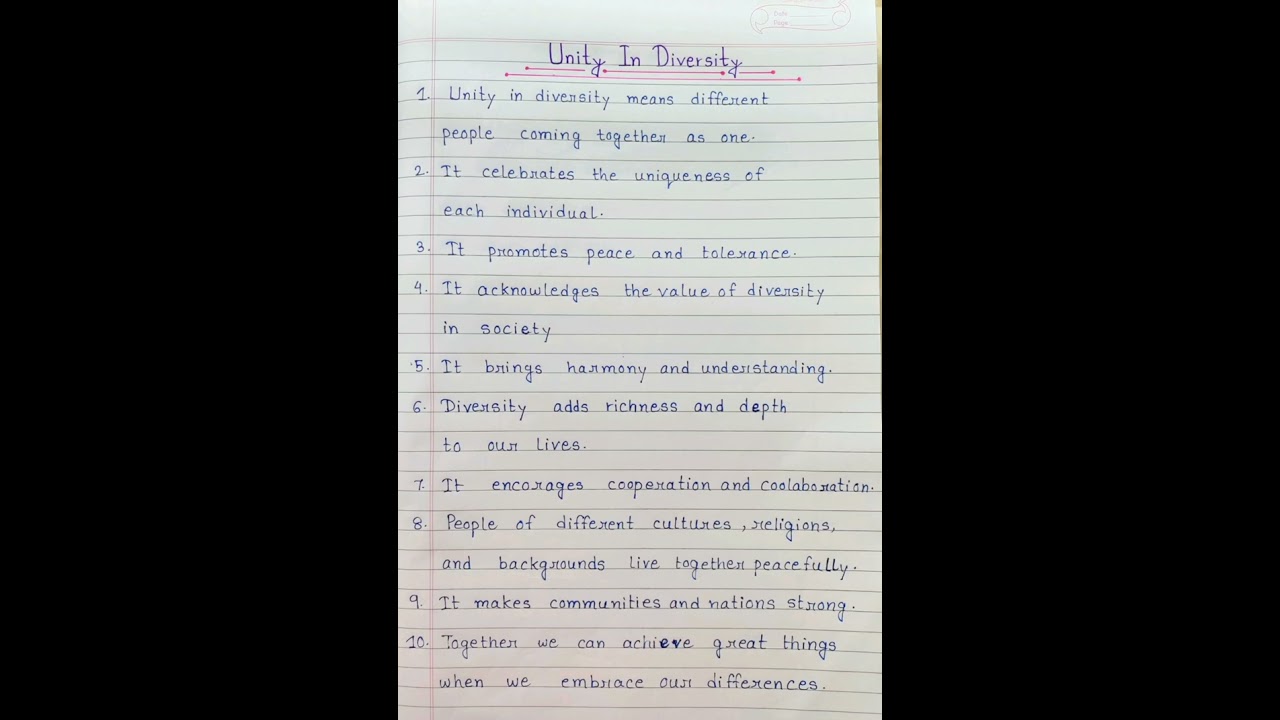 Date
Page
Unity In Diversity
1. Unity in diversity means different
people coming together as one.
2. It celebrates the uniqueness of
each individual.
3. It promotes peace and tolerance.
4. It acknowledges the value of diversity
in society
5. It brings harmony and understanding.
6. Diversity adds richness and depth
to our lives.
7. It encorages cooperation and coolaboration.
8. People of different cultures, religions,
and backgrounds live together peacefully.
9. It makes communities and nations strong.
10. Together we can achieve great things
when we embrace our differences.